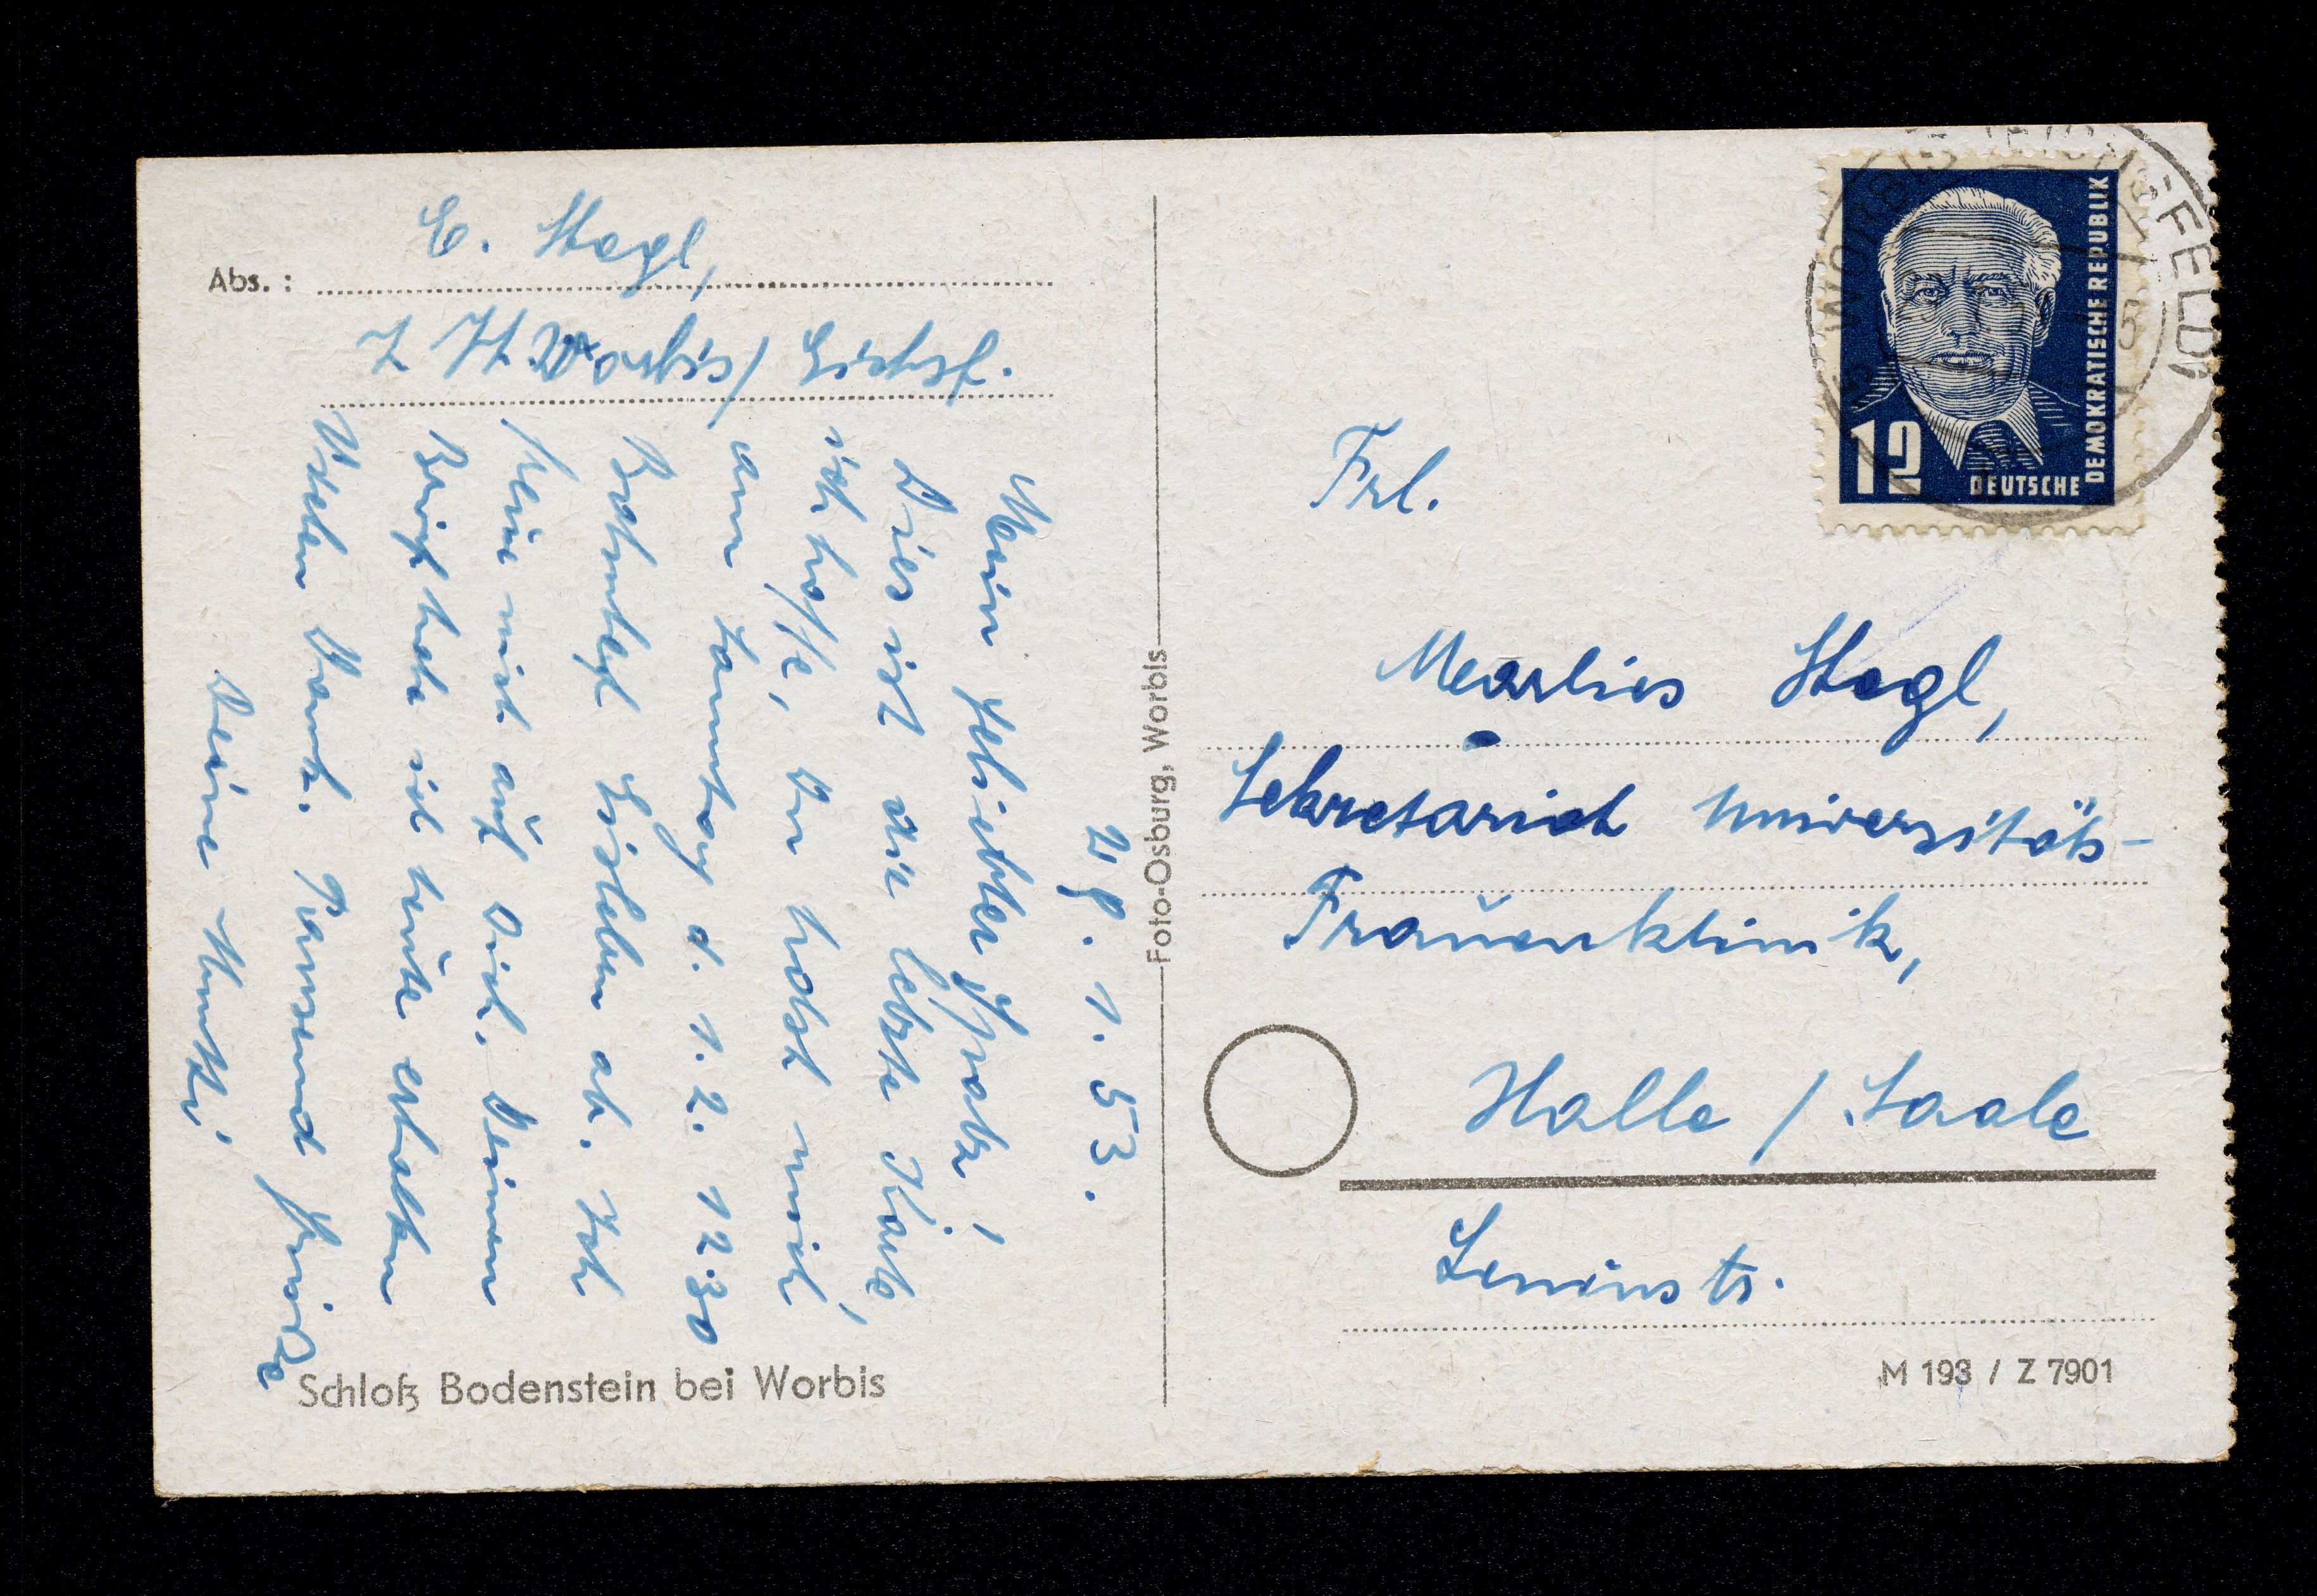 Abs.: E. Stagl,
z. Zt. Worbis/Eichsf.
28. 1. 53.
Mein geliebter Spatz,
Dies ist die letzte Karte,
ich hoffe, Du holst mich,
am Sonntag d. 1. 2. 12.30
Bahnhof Eisleben ab. Ich
freue mich auf Dich. Deinen
Brief habe ich heute erhalten
Vielen Dank. Tausend Grüße
Deine Mutti.
Schloß Bodenstein bei Worbis
Foto-Osburg, Worbis
WORBIS
FELD)
12
DEUTSCHE
DEMOKRATISCHE REPUBLIK
Frl.
Marlies Stagl,
Sekretariat Universitäts-
Frauenklinik,
Halle / Saale
Leninstr.
M 193 / Z 7901